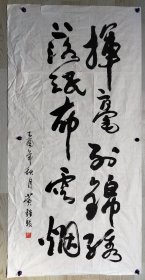 揮毫列錦繡
落紙布雲烟
乙酉年秋月黄